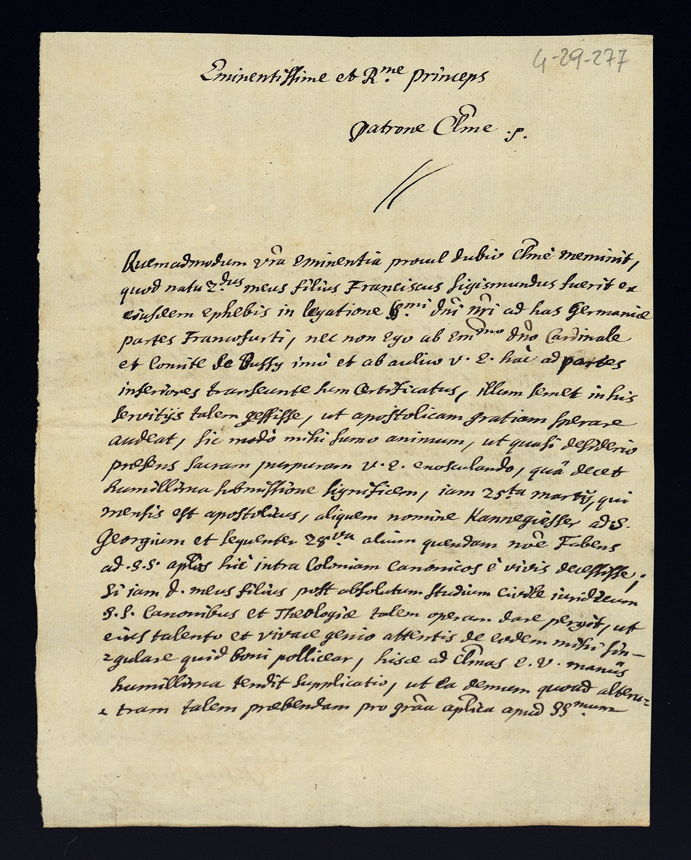 4-29-277
Eminentissime et Rme Princeps
Patrone Clme p.
Quemadmodum vra Eminentia procul dubio Clmè meminit,
quod natu 2dus meus filius Franciscus Sigismundus fuerit ex
eiusdem ephebis in legatione Smi dni nri ad has Germaniae
partes Francofurti, nec non Ego ab Emdmo dno Cardinale
et Comite de Bussy imò et ab aulico v. E. hàc ad partes
inferiores transeunte sum Certificatus, illum semet in his
servitijs talem gessisse, ut apostolicam gratiam sperare
audeat, sic modò mihi sumo animum, ut quasi desiderio
praesens sacram purpuram v. E. exosculando, quâ decet
humillima submissione significem, iam 25ta martij, qui
mensis est apostolicus, aliquem nomine Kannegiesser ad S.
Georgium et sequenter 28va alium quendam noe Fabens
ad S.S. aplos hic intra Coloniam canonicos è vivis decessisse;
Si iam d. meus filius post absolutum studium civile iuridicum
S.S. Canonibus et Theologiae talem operam dare pergit, ut
eius talento et vivace genio attentis de eodem mihi sin-
gulare quid boni pollicear, hisce ad Clmas E. V. manûs
humillima tendit supplicatio, ut ea demum quoad alteru-
tram talem praebendam pro grâa aplica apud SSmum